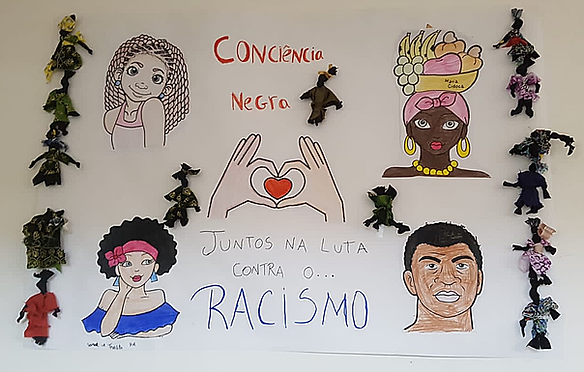 CONCIÊNCIA
NEGRA
JUNTOS NA LUTA
CONTRA O...
RACISMO